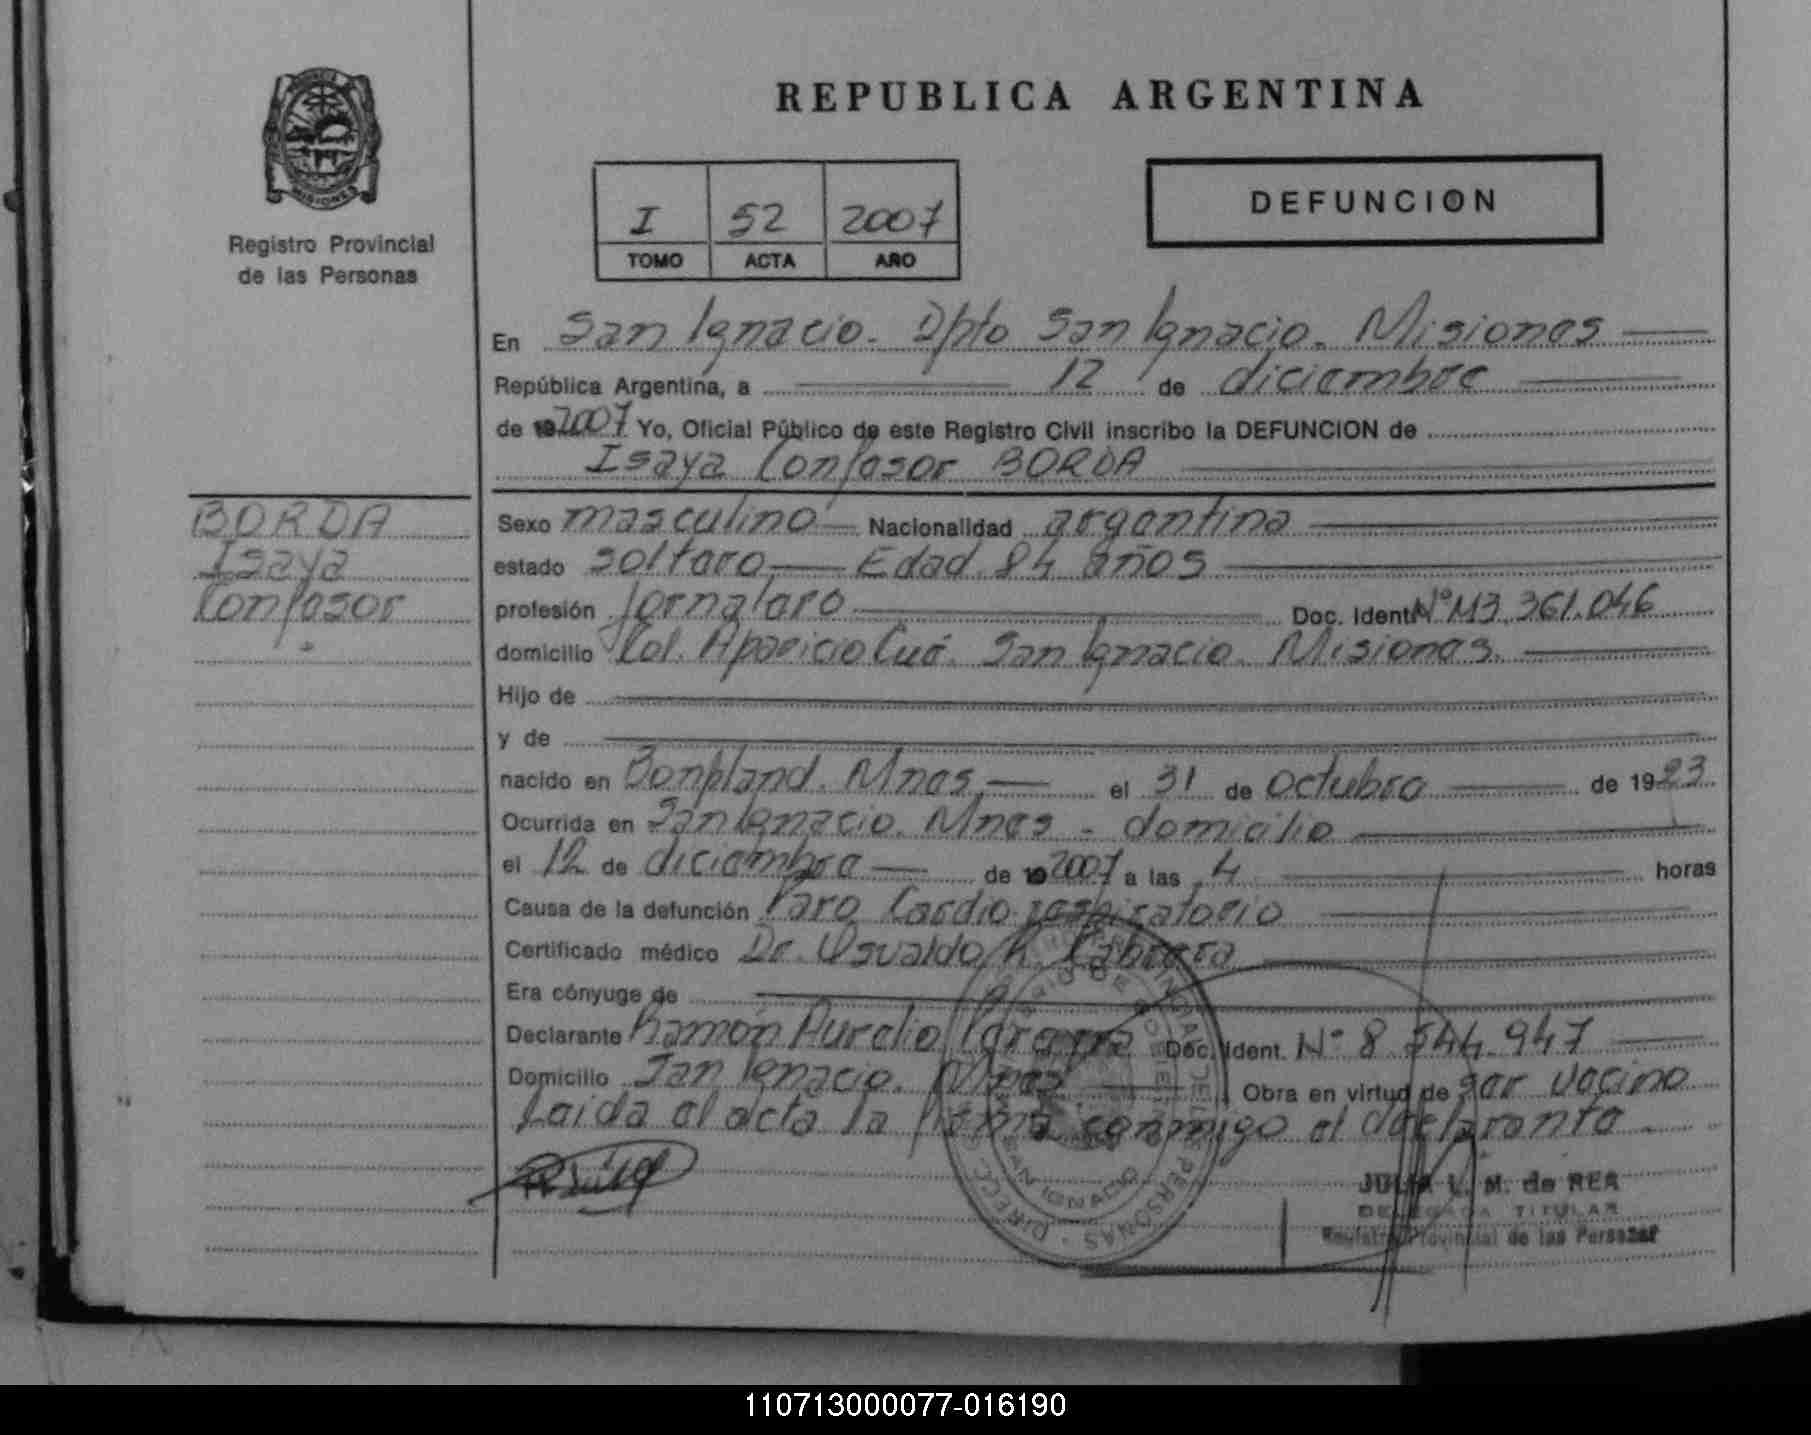 REPUBLICA ARGENTINA
PROVINCIA
MISIONES
Registro Provincial
de las Personas
I 52 2007
TOMO ACTA AÑO
DEFUNCION
En San Ignacio. Dpto San Ignacio. Misiones
República Argentina, a 12 de diciembre
de 192007 Yo, Oficial Público de este Registro Civil inscribo la DEFUNCION de
Isaya Confesor BORDA
BORDA
Isaya
Confesor
Sexo masculino Nacionalidad argentina
estado soltero Edad 84 años
profesión Jornalero Doc. Ident. Nº M3.361.046
domicilio Col. Aparicio Cué. San Ignacio. Misiones.
Hijo de
y de
nacido en Bonpland. Mnes. el 31 de Octubre de 1923
Ocurrida en San Ignacio. Mnes - domicilio
el 12 de diciembre de 192007 a las 4 horas
Causa de la defunción Paro Cardio respiratorio
Certificado médico Dr. Osvaldo R. Cabrera
Era cónyuge de
Declarante Ramón Aurelio Doc. Ident. Nº 8.544.947
Domicilio San Ignacio. Mnes Obra en virtud de ser vecino
Leida el acta la firma conmigo el declarante
SAN IGNACIO
PERSONAS
JULIA L. M. de REA
DELEGADA TITULAR
Registro Provincial de las Personas
110713000077-016190